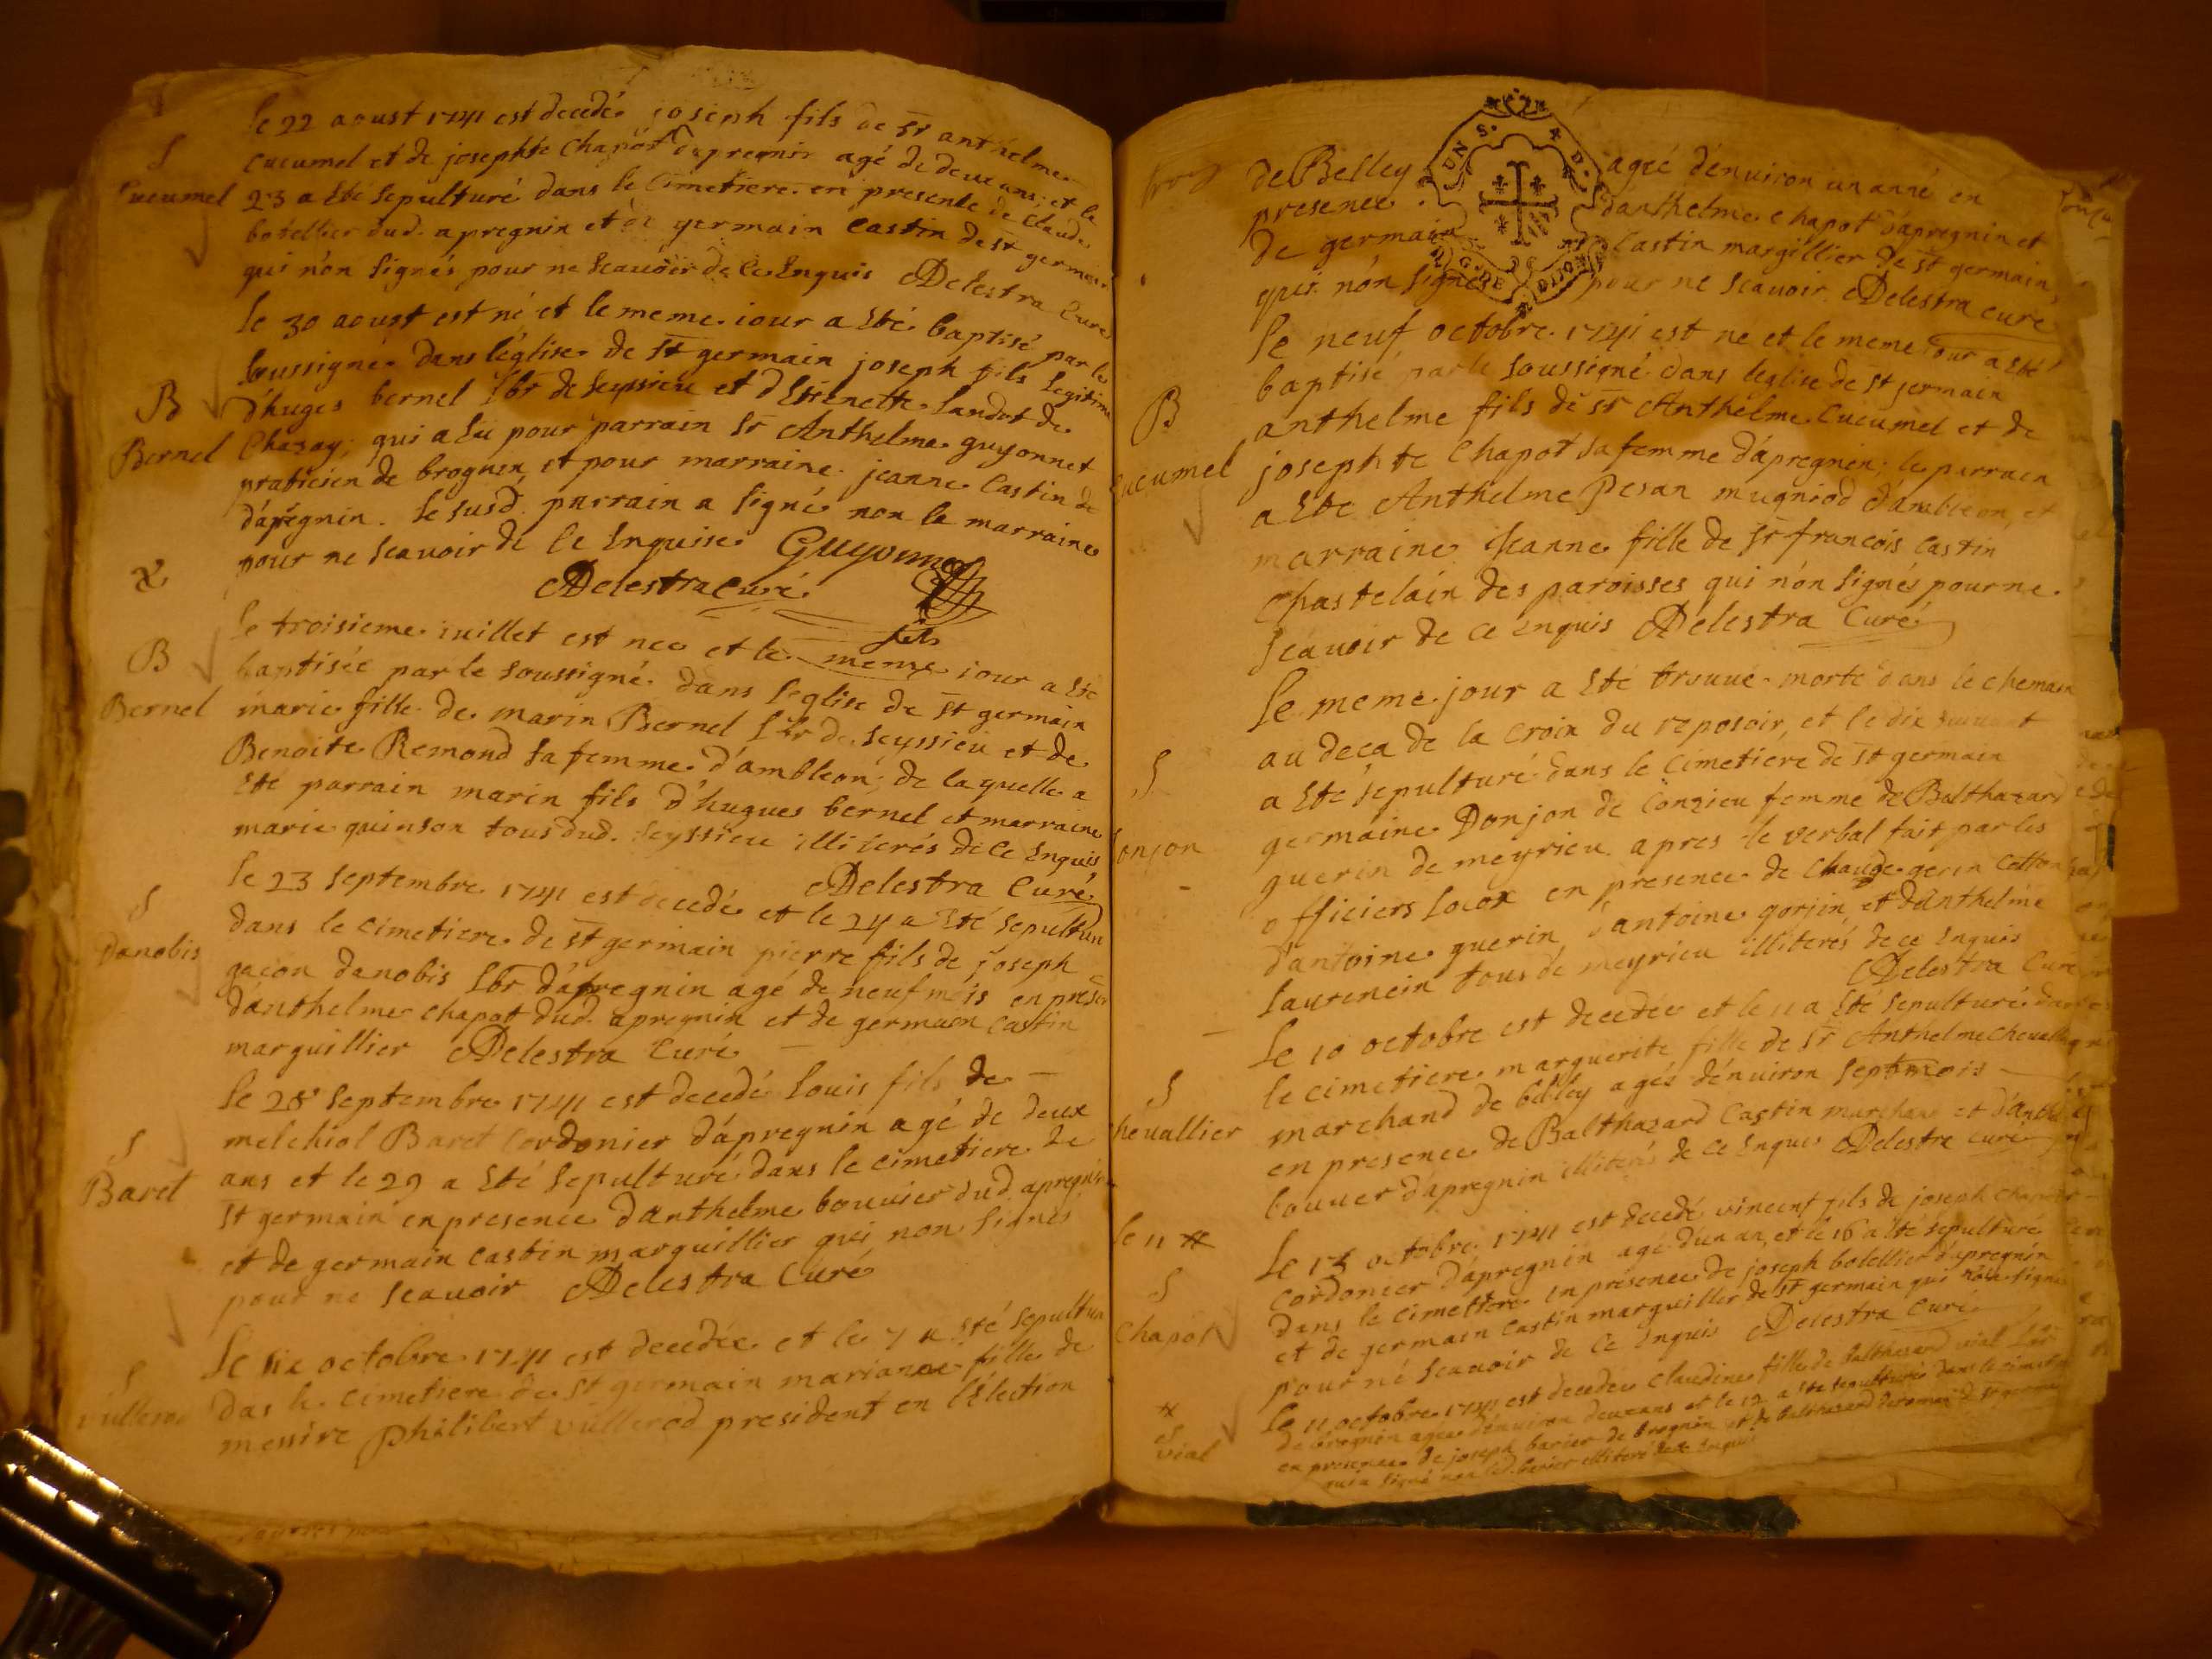 le 22 aoust 1741 est decedé joseph fils de sr anthelme
S
Cucumel
cucumel et de josephte Chapot d'apregnin agé de deux ans; et le
23 a esté sepulturé dans le cimetiere en presence de claude
botellier dud. apregnin et de germain castin de st germain
qui n'on signés pour ne scavoir de ce enquis Delestra Curé
le 30 aoust est né et le meme iour a esté baptisé par le
soussigné dans l'église de st germain joseph fils legitime
B
Bernel
d'huges bernel lbr de seyssieu et d'estienette landot de
Chazay; qui a eu pour parrain sr Anthelme guyonnet
praticien de brognin, et pour marraine jeanne castin de
d'apregnin. le susd. parrain a signé non la marraine
pour ne scavoir de ce enquise Guyonnet
Delestra curé
fils
B
Bernel
le troisieme iuillet est nee et le meme iour a esté
baptisée par le soussigné dans l'eglise de st germain
marie fille de marin Bernel lbr de seyssieu et de
Benoite Remond sa femme d'ambleon; de laquelle a
esté parrain marin fils d'hugues bernel et marraine
marie quinson tous dud. seyssieu illiterés de ce enquis,
Delestra Curé
S
Danobis
le 23 septembre 1741 est decedé et le 24 a esté sepulturé
dans le cimetiere de st germain pierre fils de joseph
gacon danobis lbr d'apregnin agé de neuf mois en presen
d'anthelme chapot dud. apregnin et de germain castin
marguillier Delestra Curé
S
Baret
le 28 septembre 1741 est decedé louis fils de
melchiol Baret cordonier d'apregnin agé de deux
ans et le 29 a esté sepulturé dans le cimetiere de
st germain en presence d'anthelme bouvier dud. apregnin
et de germain castin marguillier qui non signés
pour ne scavoir Delestra Curé
S
Vullerod
le six octobre 1741 est decedée et le 7 a esté sepultur
das le cimetiere de st germain mariane fille de
messire philibert vullerod president en l'élection
de Belley agée d'environ un anné en
presence d'anthelme chapot d'apregnin et
de germain castin margillier de st germain,
qui n'on signés pour ne scavoir Delestra curé
B
cucumel
le neuf octobre 1741 est né et le meme iour a esté
baptisé par le soussigné dans l'eglise de st germain
anthelme fils de sr Anthelme Cucumel et de
josephte Chapot sa femme d'apregnin; le parrain
a esté Anthelme pesan mugniod d'ambleon, et
marraine jeanne fille de sr francois castin
Chastelain des paroisses qui n'on signés pour ne
scavoir de ce enquis Delestra Curé
S
Donjon
le meme jour a esté trouvé morte dans le chemain
au deça de la croix du reposoir, et le dix suivant
a esté sepulturé dans le cimetiere de st germain
germaine Donjon de Conzieu femme de Balthazard
guerin de meyrieu apres le verbal fait par les
officiers locox en presence de Claude gerin cotton
d'antoine guerin, d'antoine gorjin, et d'anthelme
laurencin tous de meyrieu illiterés de ce enquis
Delestra Curé
S
chevallier
le 10 octobre est decedée et le 11 a esté sepulturé dans
le cimetiere marguerite fille de sr Anthelme chevallier
marchand de belley agée d'environ sept mois
en presence de Balthazard castin marchand et d'anthel
bouvier d'apregnin illiterés de ce enquis Delestra curé
le 11 #
S
Chapot
le 15 octobre 1741 est decedé vincent fils de joseph chapot
cordonier d'apregnin agé d'un an, et le 16 a esté sepulturé
dans le cimetiere en presence de joseph botellier d'apregnin
et de germain castin marguiller de st germain qui non signés
pour né scavoir de ce enquis Delestra Curé
#
S
vial
le 11 octobre 1741 est decedée claudine fille de balthazard vial lbr
de brognin agée d'environ deux ans et le 12 a esté sepulturé dans le cimetiere
en presence de joseph barier de brognin et de balthazard de st germain
qui a signé non led. barier illiteré de ce enquis